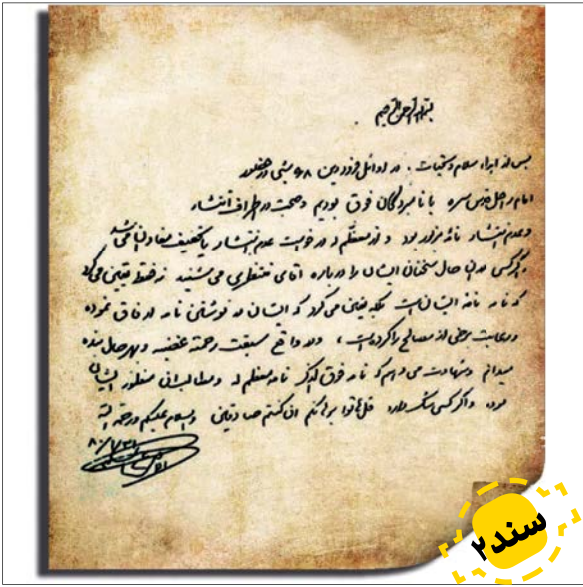 بسم الله الرحمن الرحیم
پس از ابراء سلام و تحیات، در اوائل فروردین ۶۸ شبی در حضور
امام راحل قدس سره با نامبردگان فوق بودیم و صحبت در اطراف انتشار
و عدم انتشار نامه مزبور بود و از معظم له درخواست عدم انتشار یا تخفیف مفاد آن می‌شد
هرکس در آن حال سخنان ایشان را درباره آقای منتظری می‌شنید نه فقط یقین می‌کرد
که نامه نامه ایشان است بلکه یقین می‌کرد که ایشان در نوشتن نامه ارفاق نموده
و رعایت برخی از مصالح را کرده است، و در واقع سبقت رحمته غضبه و بهر حال بنده
میدانم و شهادت می‌دهم که نامه فوق الذکر نامه معظم له و مطالب آن منظور ایشان
بوده و اگر کسی شک دارد قل هاتوا برهانکم ان کنتم صادقین والسلام علیکم و رحمة الله
سند۲